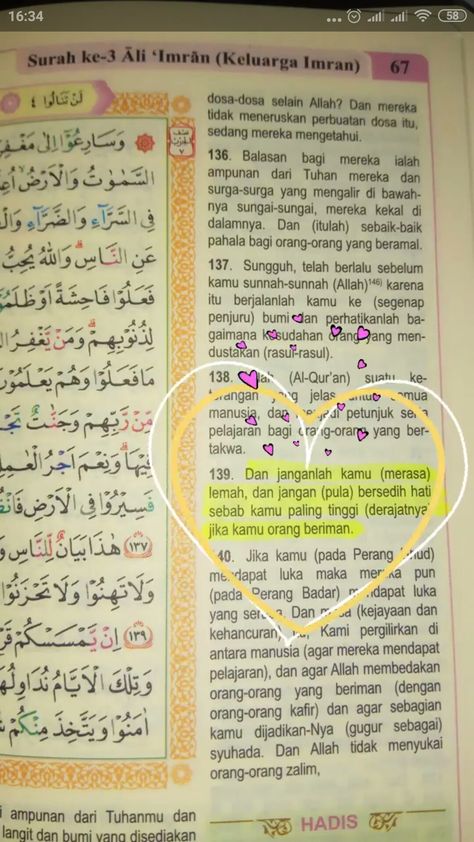 16:34
58
Surah ke-3 Āli ‘Imrān (Keluarga Imran)
67
لَنْ تَنَالُوا ٤
وَسَارِعُوْٓا اِلٰى مَغْفِرَ
السَّمٰوٰتُ وَالْاَرْضُ اُعِ
فِى السَّرَّۤاءِ وَالضَّرَّۤاءِ وَالْ
عَنِ النَّاسِۗ وَاللّٰهُ يُحِبُّ
فَعَلُوْا فَاحِشَةً اَوْ ظَلَمُوْٓ
لِذُنُوْبِهِمْۗ وَمَنْ يَّغْفِرُ ال
مَا فَعَلُوْا وَهُمْ يَعْلَمُوْنَ
مِّنْ رَّبِّهِمْ وَجَنّٰتٌ تَجْ
فِيْهَاۗ وَنِعْمَ اَجْرُ الْعٰمِلِ
فَسِيْرُوْا فِى الْاَرْضِ فَانْظُ
﴿١٣٧﴾ هٰذَا بَيَانٌ لِّلنَّاسِ وَ
وَلَا تَهِنُوْا وَلَا تَحْزَنُوْ
﴿١٣٩﴾ اِنْ يَّمْسَسْكُمْ قَرْ
وَتِلْكَ الْاَيَّامُ نُدَاوِلُهَ
اٰمَنُوْا وَيَتَّخِذَ مِنْكُمْ
i ampunan dari Tuhanmu dan
langit dan bumi yang disediakan
dosa-dosa selain Allah? Dan mereka
tidak meneruskan perbuatan dosa itu,
sedang mereka mengetahui.
136. Balasan bagi mereka ialah
ampunan dari Tuhan mereka dan
surga-surga yang mengalir di bawah-
nya sungai-sungai, mereka kekal di
dalamnya. Dan (itulah) sebaik-baik
pahala bagi orang-orang yang beramal.
137. Sungguh, telah berlalu sebelum
kamu sunnah-sunnah (Allah)146) karena
itu berjalanlah kamu ke (segenap
penjuru) bumi dan perhatikanlah ba-
gaimana kesudahan orang yang men-
dustakan (rasul-rasul).
138. Inilah (Al-Qur’an) suatu ke-
terangan yang jelas untuk semua
manusia, dan menjadi petunjuk serta
pelajaran bagi orang-orang yang ber-
takwa.
139. Dan janganlah kamu (merasa)
lemah, dan jangan (pula) bersedih hati
sebab kamu paling tinggi (derajatnya)
jika kamu orang beriman.
40. Jika kamu (pada Perang Uhud)
mendapat luka maka mereka pun
(pada Perang Badar) mendapat luka
yang serupa. Dan masa (kejayaan dan
kehancuran) itu, Kami pergilirkan di
antara manusia (agar mereka mendapat
pelajaran), dan agar Allah membedakan
orang-orang yang beriman (dengan
orang-orang kafir) dan agar sebagian
kamu dijadikan-Nya (gugur sebagai)
syuhada. Dan Allah tidak menyukai
orang-orang zalim,
HADIS